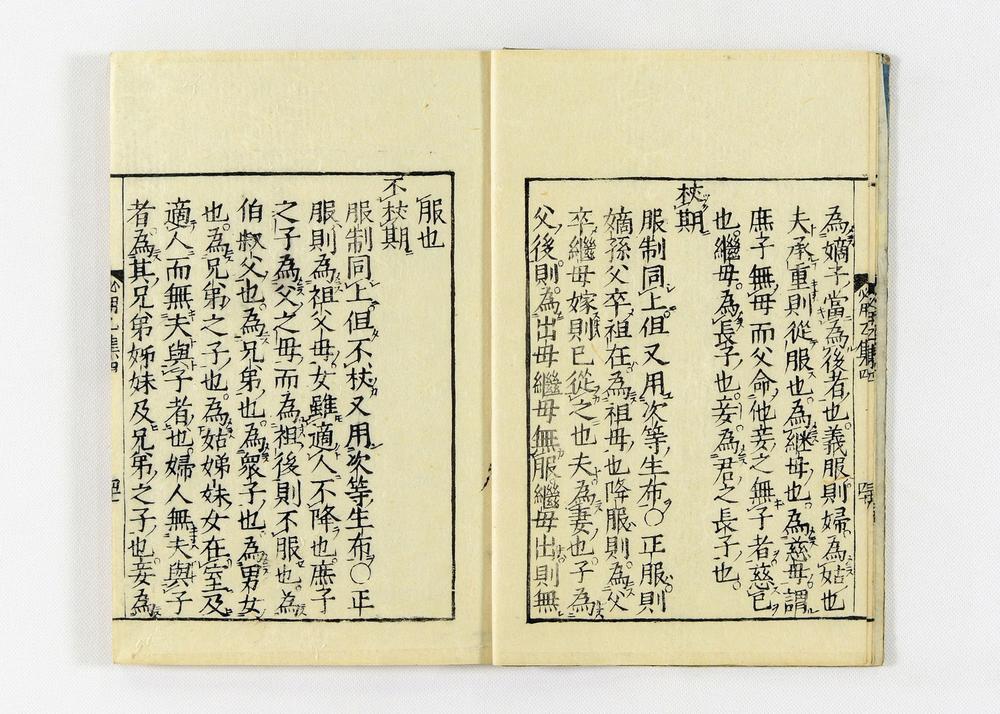 為嫡子當為後者也義服則婦為姑也
夫承重則從服也為継母也為慈母謂
庶子無母而父命他妾之無子者慈己
也繼母為長子也妾為君之長子也
杖期
服制同上但又用次等生布〇正服則
嫡孫父卒祖在為祖母也降服則為父
卒繼母嫁則已從之也夫為妻也子為
父後則為出母繼母無服繼母出則無
服也
不杖期
服制同上但不杖又用次等生布〇正
服則為祖父母女雖適人不降也庶子
之子為父之母而為祖後則不服也為
伯叔父也為兄弟也為衆子也為男女
也為兄弟之子也為姑姊妹女在室及
適人而無夫與子者也婦人無夫與子
者為其兄弟姊妹及兄弟之子也妾為